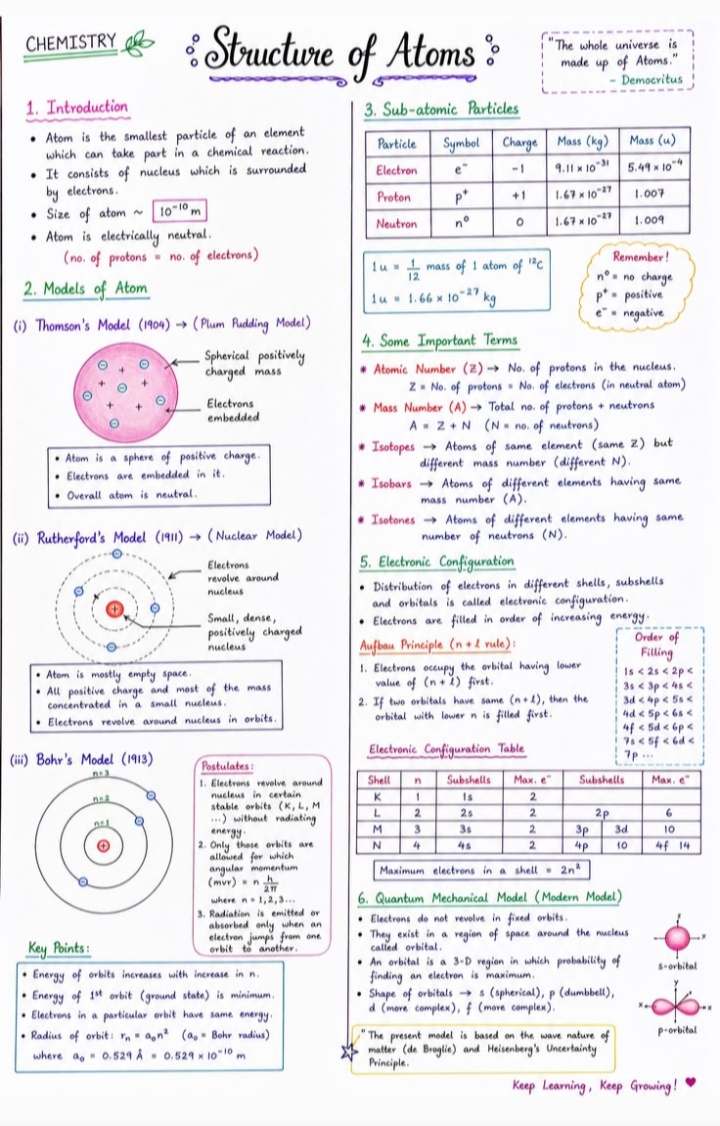 CHEMISTRY
Structure of Atoms
"The whole universe is
made up of Atoms."
- Democritus
1. Introduction
• Atom is the smallest particle of an element
which can take part in a chemical reaction.
• It consists of nucleus which is surrounded
by electrons.
• Size of atom ~ 10⁻¹⁰ m
• Atom is electrically neutral.
(no. of protons = no. of electrons)
2. Models of Atom
(i) Thomson's Model (1904) → (Plum Pudding Model)
Spherical positively
charged mass
Electrons
embedded
• Atom is a sphere of positive charge.
• Electrons are embedded in it.
• Overall atom is neutral.
(ii) Rutherford's Model (1911) → (Nuclear Model)
Electrons
revolve around
nucleus
Small, dense,
positively charged
nucleus
• Atom is mostly empty space.
• All positive charge and most of the mass
concentrated in a small nucleus.
• Electrons revolve around nucleus in orbits.
(iii) Bohr's Model (1913)
n=3
n=2
n=1
Postulates:
1. Electrons revolve around
nucleus in certain
stable orbits (K, L, M
...) without radiating
energy.
2. Only those orbits are
allowed for which
angular momentum
(mvr) = n h/2π
where n = 1,2,3...
3. Radiation is emitted or
absorbed only when an
electron jumps from one
orbit to another.
Key Points:
• Energy of orbits increases with increase in n.
• Energy of 1st orbit (ground state) is minimum.
• Electrons in a particular orbit have same energy.
• Radius of orbit: rₙ = a₀n² (a₀ = Bohr radius)
where a₀ = 0.529 Å = 0.529 × 10⁻¹⁰ m
3. Sub-atomic Particles
Particle Symbol Charge Mass (kg) Mass (u)
Electron e⁻ -1 9.11 × 10⁻³¹ 5.49 × 10⁻⁴
Proton p⁺ +1 1.67 × 10⁻²⁷ 1.007
Neutron n⁰ 0 1.67 × 10⁻²⁷ 1.009
1u = 1/12 mass of 1 atom of ¹²C
1u = 1.66 × 10⁻²⁷ kg
Remember!
n⁰ = no charge
p⁺ = positive
e⁻ = negative
4. Some Important Terms
* Atomic Number (Z) → No. of protons in the nucleus.
Z = No. of protons = No. of electrons (in neutral atom)
* Mass Number (A) → Total no. of protons + neutrons
A = Z + N (N = no. of neutrons)
* Isotopes → Atoms of same element (same Z) but
different mass number (different N).
* Isobars → Atoms of different elements having same
mass number (A).
* Isotones → Atoms of different elements having same
number of neutrons (N).
5. Electronic Configuration
• Distribution of electrons in different shells, subshells
and orbitals is called electronic configuration.
• Electrons are filled in order of increasing energy.
Aufbau Principle (n + l rule):
1. Electrons occupy the orbital having lower
value of (n + l) first.
2. If two orbitals have same (n+l), then the
orbital with lower n is filled first.
Order of
Filling
1s < 2s < 2p <
3s < 3p < 4s <
3d < 4p < 5s <
4d < 5p < 6s <
4f < 5d < 6p <
7s < 5f < 6d <
7p ...
Electronic Configuration Table
Shell n Subshells Max. e⁻ Subshells Max. e⁻
K 1 1s 2
L 2 2s 2 2p 6
M 3 3s 2 3p 3d 10
N 4 4s 2 4p 10 4f 14
Maximum electrons in a shell = 2n²
6. Quantum Mechanical Model (Modern Model)
• Electrons do not revolve in fixed orbits.
• They exist in a region of space around the nucleus
called orbital.
• An orbital is a 3-D region in which probability of
finding an electron is maximum.
• Shape of orbitals → s (spherical), p (dumbbell),
d (more complex), f (more complex).
s-orbital
y
x
x
p-orbital
"The present model is based on the wave nature of
matter (de Broglie) and Heisenberg's Uncertainty
Principle.
Keep Learning, Keep Growing! ♥